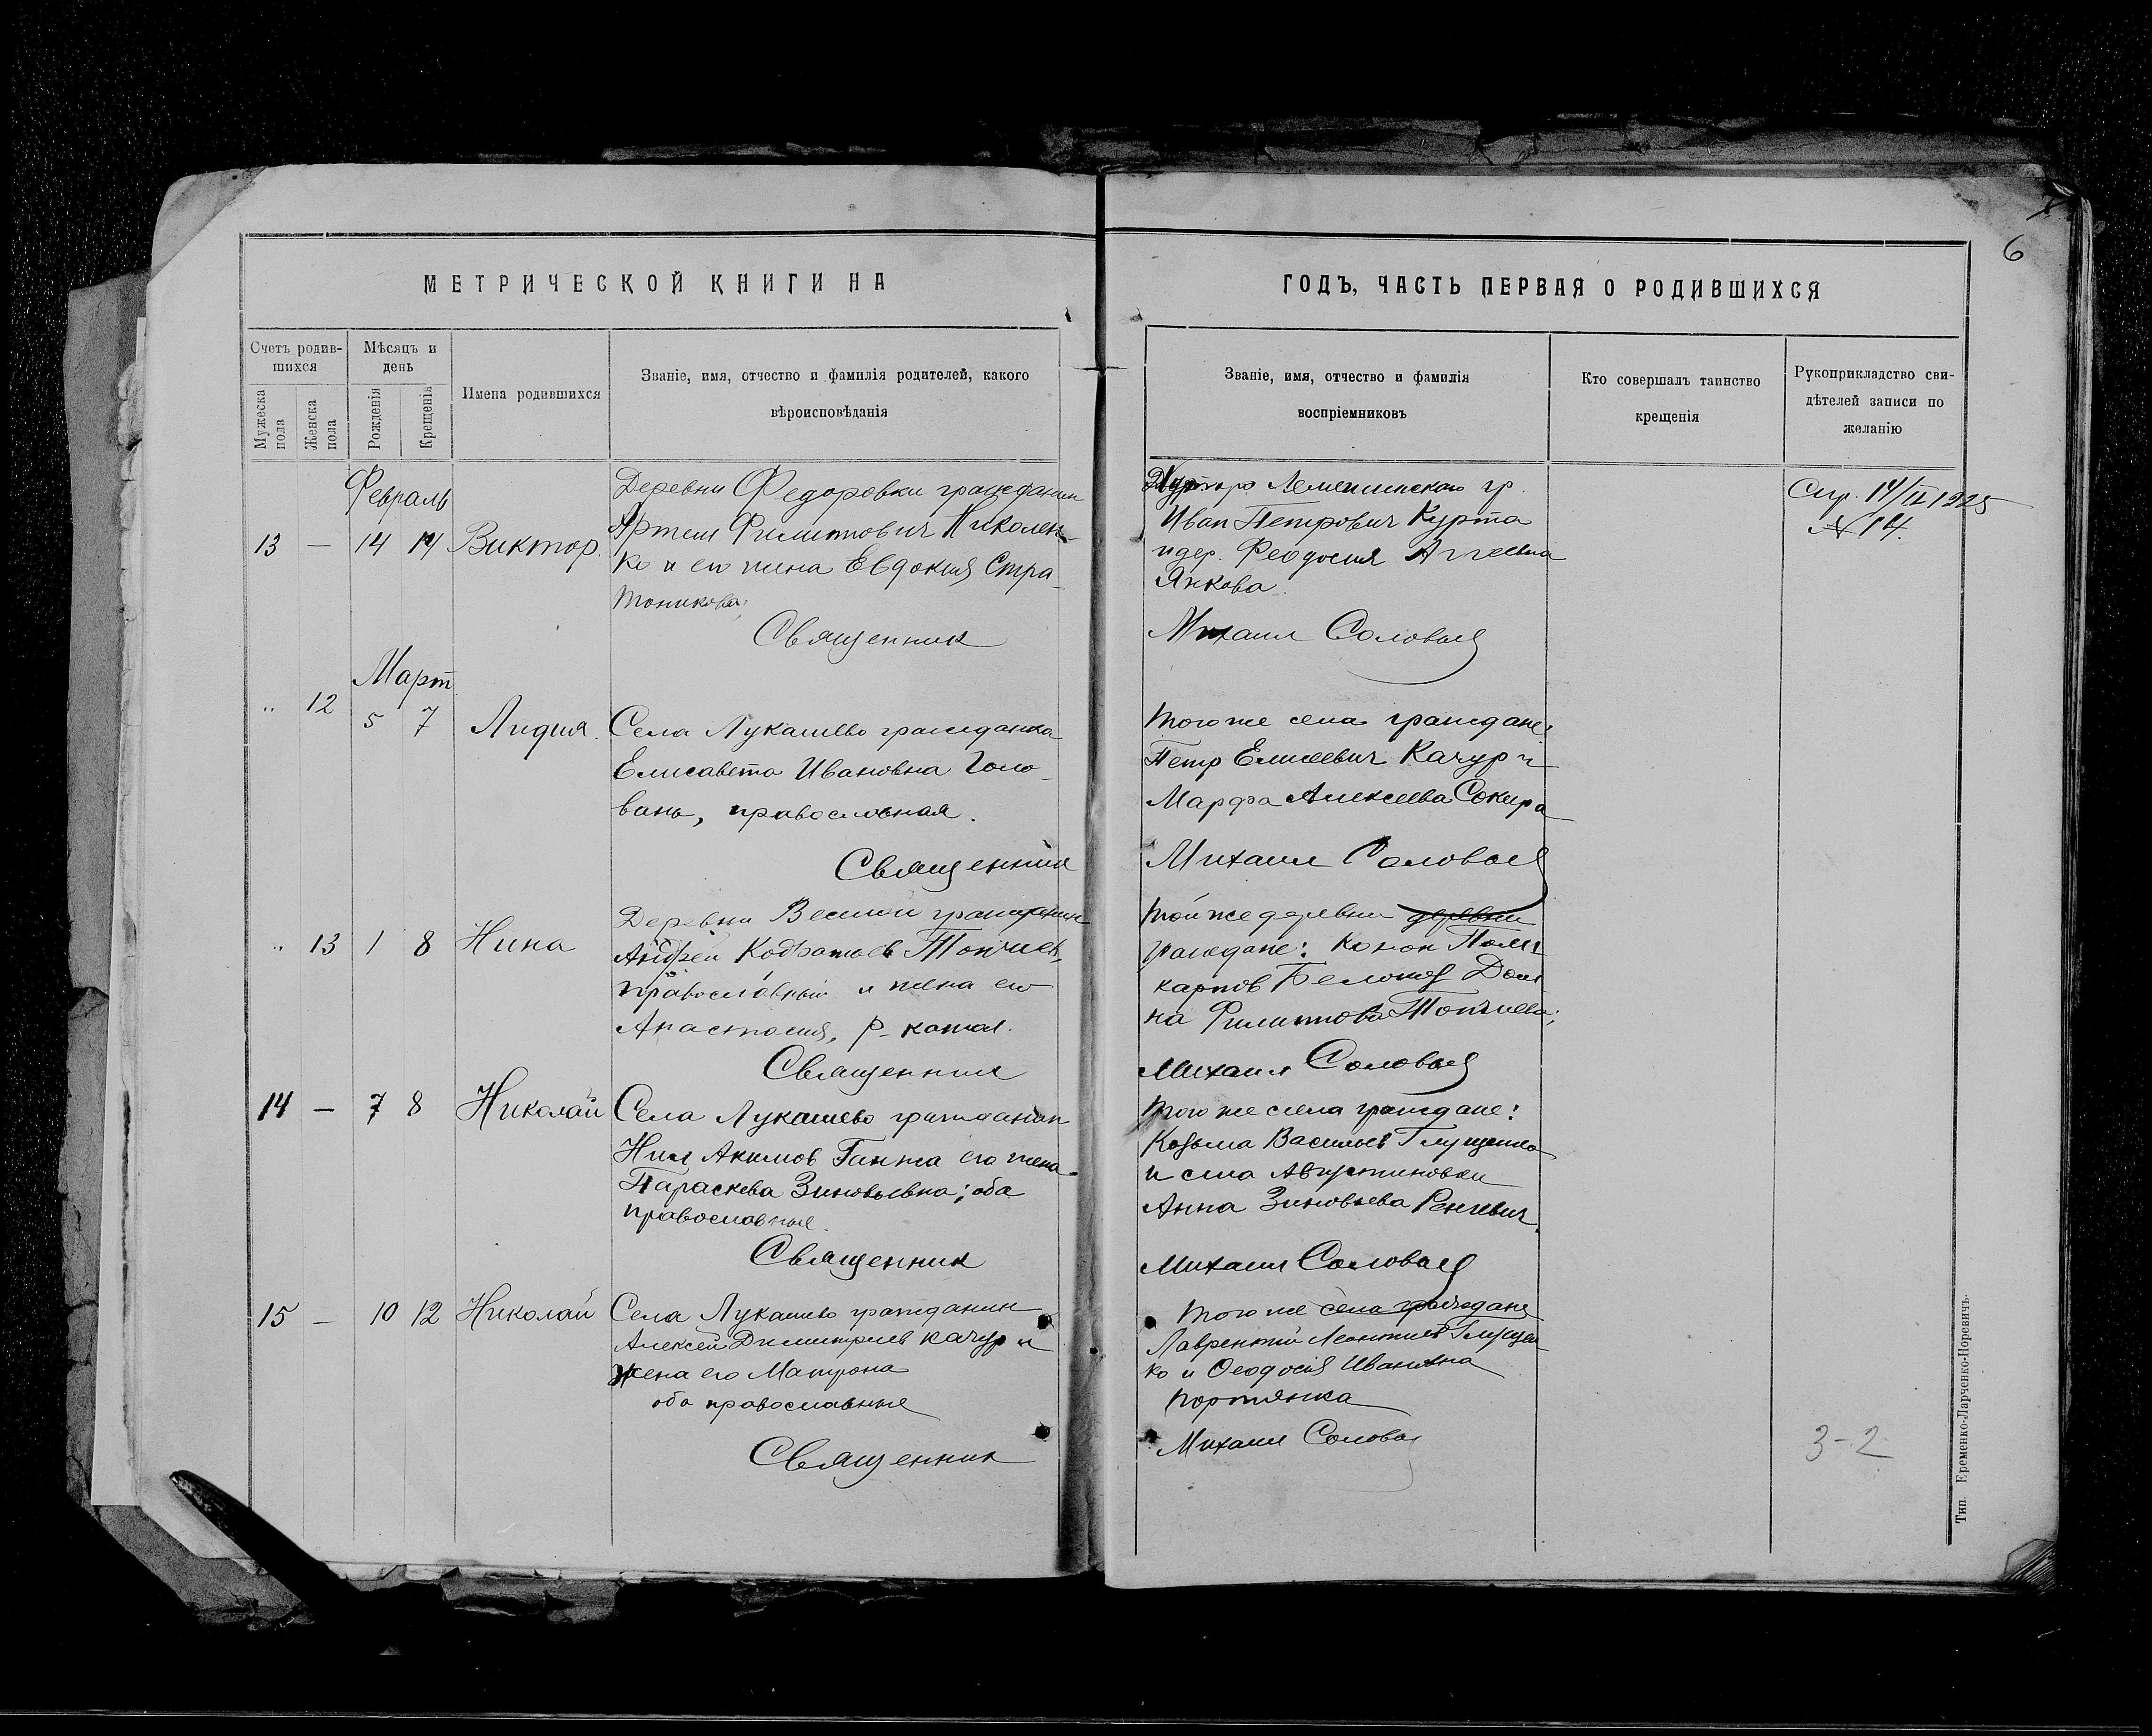 6
МЕТРИЧЕСКОЙ КНИГИ НА
ГОДЪ, ЧАСТЬ ПЕРВАЯ О РОДИВШИХСЯ
Счетъ родив-
шихся
Мужеска
пола
Женска
пола
Мѣсяцъ и
день
Рожденія
Крещенія
Имена родившихся
Званіе, имя, отчество и фамилія родителей, какого
вѣроисповѣданія
Званіе, имя, отчество и фамилія
воспріемниковъ
Кто совершалъ таинство
крещенія
Рукоприкладство сви-
дѣтелей записи по
желанію
Февраль
13 — 14 14 Виктор.
Деревни Федоровки гражданин
Артем Филиппович Николен-
ко и его жена Евдокия Стра-
тоникова
Священник
Иван Петрович Курта
и дер. Феодосия Аггеевна
Янкова.
Михаил Соловьев
14/II 1925
№ 14.
Март
" 12 5 7 Лидия.
Села Лукашево гражданка
Елисавета Ивановна Голо-
вань, православная.
Священник
того же села граждане
Петр Елисеевич Качур и
Марфа Алексеева Сокира
Михаил Соловьев
" 13 1 8 Нина
Деревни Веселой гражданин
Андрей Топчиев,
православный и жена его
Анастасия, р.-катол.
Священник
той же деревни деревни
граждане: Конон Поли
карпов Белоконь Дом
на Филиппова Топчиева;
Михаил Соловьев
14 — 7 8 Николай
Села Лукашево гражданин
Нил Акимов Ганжа его жена
Параскева Зиновьевна; оба
православные.
Священник
того же села граждане:
Козьма Васильев Глущенко
и села Августиновки
Анна Зиновьева
Михаил Соловьев
15 — 10 12 Николай
Села Лукашево гражданин
Алексей Димитриев Качур и
жена его Матрона
оба православные
Священник
того же села граждане
Лаврентий Леонтиев Глущен
ко и Феодосия Ивановна
Портянка
Михаил Соловьев
3-2
Тип. Еременко-Ларченко-Норевичъ.